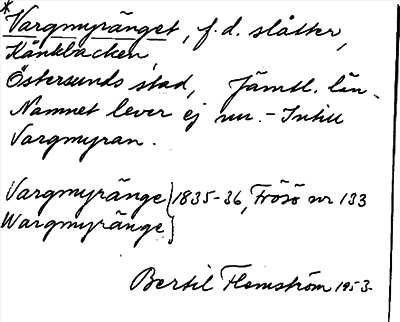 *Vargmyränget, f.d. slåtter,
Kånkbacken,
Östersunds stad, Jämtl. län.
Namnet lever ej nu. - Intill
Vargmyran.
Vargmyränge } 1835-36, Frösö nr 133
Wargmyränge }
Bertil Flemström 1953.